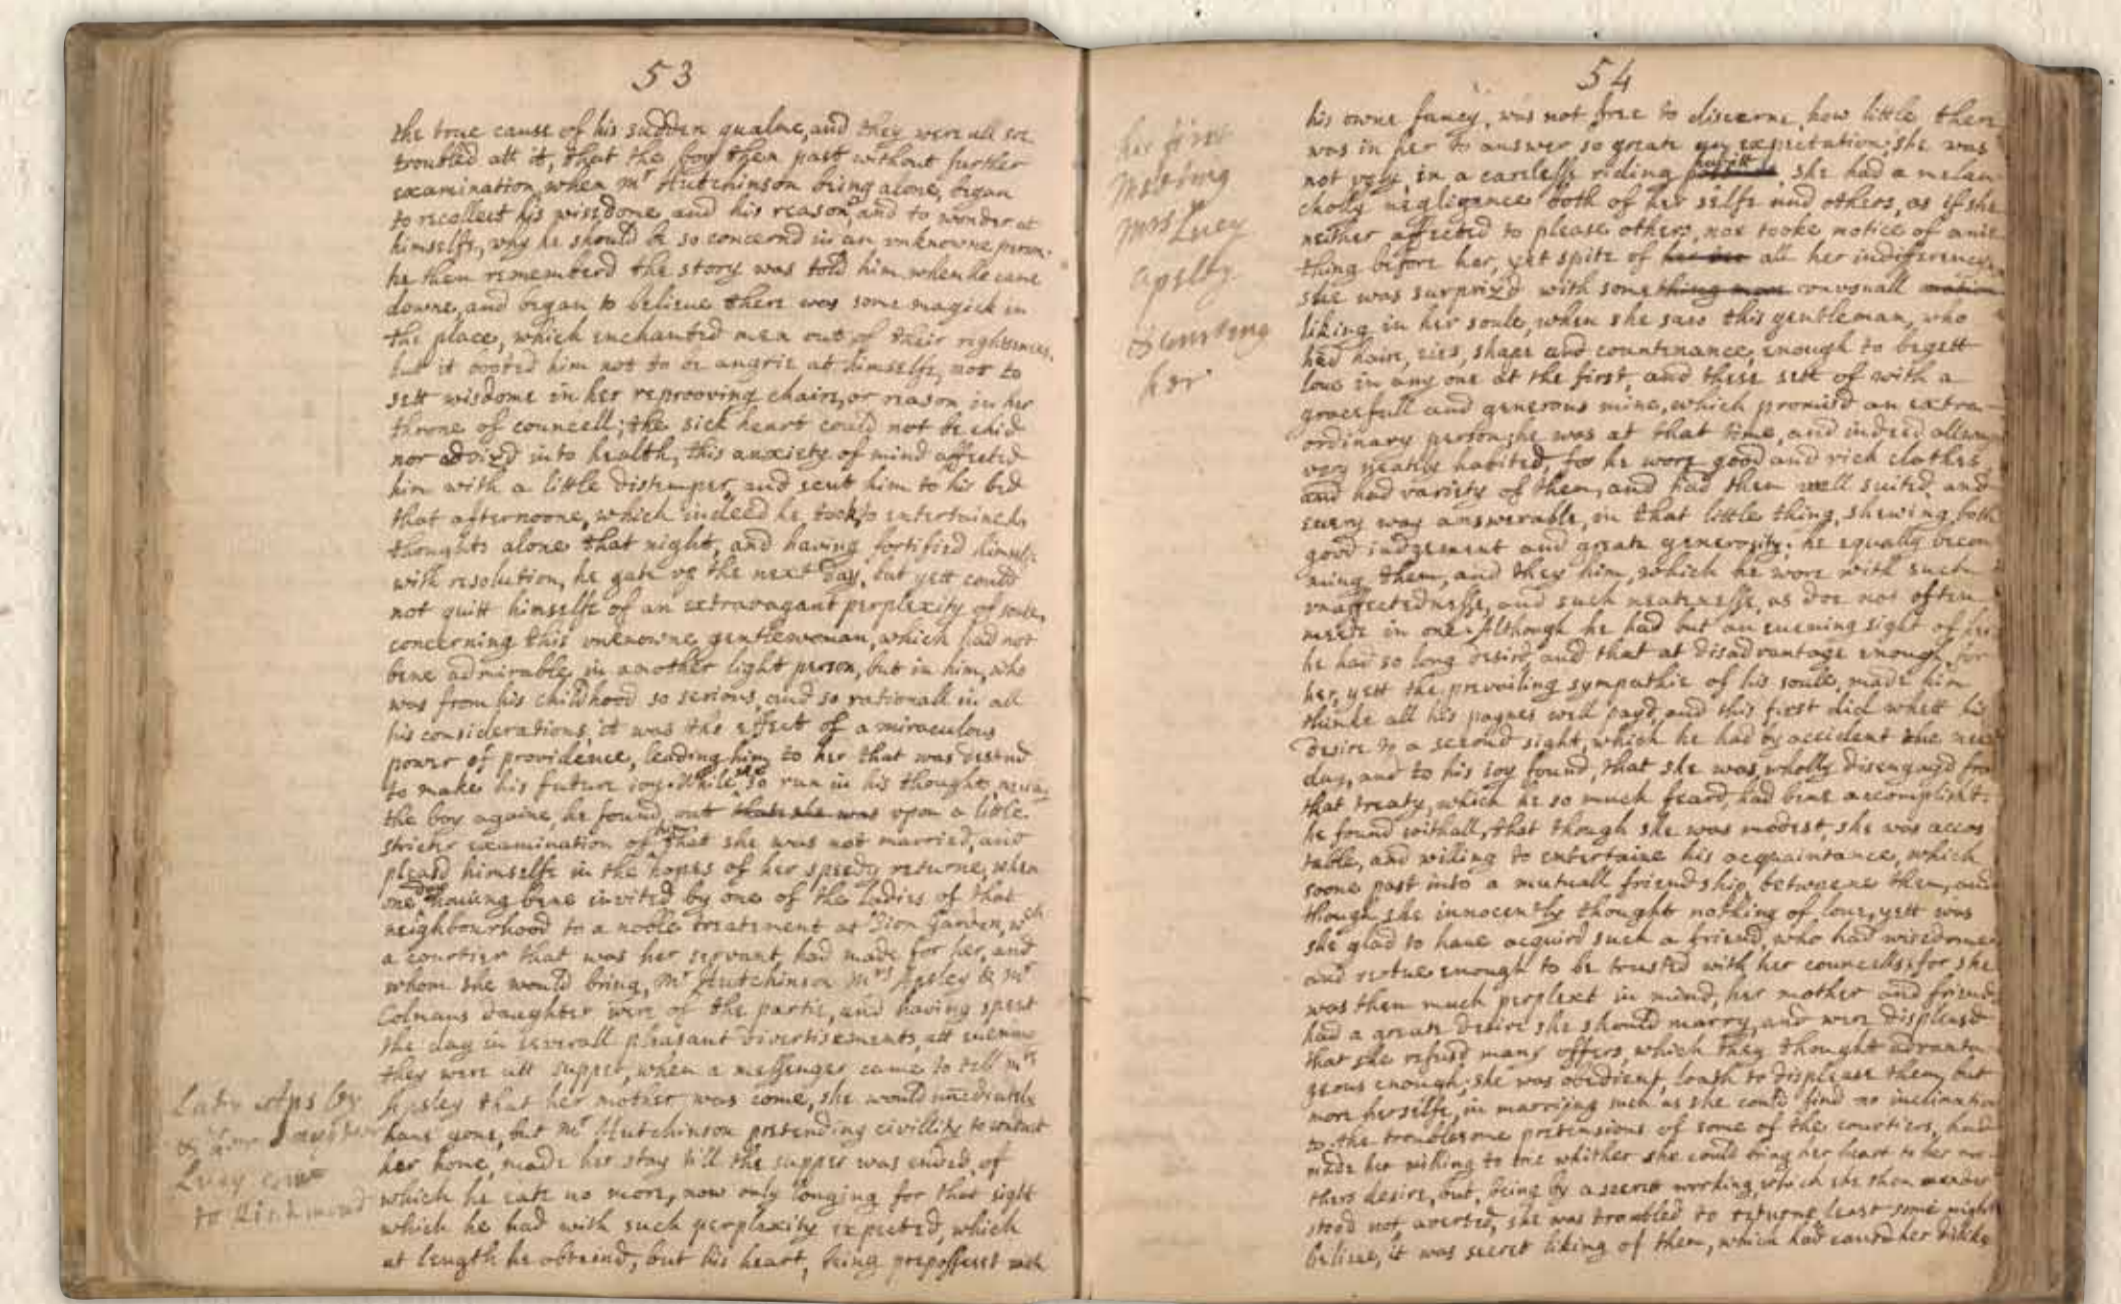 53
the true cause of his sudden qualme, and they were all soe
troubled att it, that the boy then past without further
examination, when Mr Hutchinson being alone, began
to recollect his wisedome, and his reason, and to wonder at
himselfe, why he should be so concernd in an unknowne person.
he then rememberd the story was told him when he came
downe, and began to believe there was some magick in
the place, which enchanted men out of their right sences.
but it booted him not to be angrie at himselfe, nor to
sett wisdome in her reprooving chaire, or reason in her
throne of councell; the sick heart could not be chid
nor advizd into health, this anxiety of mind affected
him with a little distemper, and sent him to his bed
that afternoone, which indeed he tooke to entertaine his
thoughts alone that night, and having fortified himselfe
with resolution, he gate up the next day, but yett could
not quitt himselfe of an extravagant perplexity of soule,
concerning this unknowne gentlewoman, which had not
bene admirable in another light person, but in him, who
was from his childhood so serious, and so rationall in all
his considerations, it was the effect of a miraculous
power of providence, leading him to her that was destind
to make his future ioy. While she so run in his thoughts,
the boy againe, he found out that she was upon a little
stricter examination of him that she was not married, and
pleasd himselfe in the hopes of her speedy returne, when
one day having bene invited by one of the ladies of that
neighbourhood to a noble treatment at Sion Garden, wch
a courtier that was her servant, had made for her, and
whom she would bring, Mr Hutchinson Mrs Apsley & Mr
Colmans daughter were of the partie, and having spent
the day in severall pleasant divertisements, att evening
they were att supper, when a messenger came to tell Mrs
Apsley that her mother was come, she would imediately
have gone, but Mr Hutchinson pretending civillity to conduct
her home, made her stay till the supper was ended, of
which he eate no more, now only longing for that sight
which he had with such perplexity expected, which
at length he obteind, but his heart, being prepossesst with
Lady Apsley
& her daughter
Lucy come
to Richmond
54
her first
meeting
Mrs Lucy
Apsley.
her
his owne fancy, was not free to discerne how little there
was in her to answer so greate an expectation; she was
not ugly, in a carelesse riding habitt, she had a melan
cholly negligence both of her selfe and others, as if she
neither affected to please others, nor tooke notice of anie
thing before her, yet spite of all her indifferency
she was surprizd with some thing more unusuall
liking in her soule, when she saw this gentleman, who
had haire, eies, shape and countenance, enough to begett
love in any one at the first, and these sett of with a
gracefull and generous mine, which promisd an extra-
ordinary person; he was at that time, and indeed allways
very neately habited, for he wore good and rich clothes
and had variety of them, and had them well suited, and
every way answerable, in that little thing, shewing both
good iudgement and greate generosity: he equally becom
ming them, and they him, which he wore with such
unaffectednesse, and such neatenesse, as doe not often
meete in one. Although he had but an evening sight of her
he had so long desird, and that at disadvantage enough for
her, yett the prevailing sympathie of his soule, made him
thinke all his paynes well payd, and this first did whett his
desire to a second sight, which he had by accident the next
day, and to his ioy found, that she was wholly disengagd from
that treaty, which he so much feard, had bene accomplisht:
he found withall, that though she was modest, she was accos
table, and willing to entertaine his acquaintance, which
soone past into a mutuall friendship, betweene them, and
though she innocently thought nothing of love, yett was
she glad to have acquird such a friend, who had wisedome
and vertue enough to be trusted with her councells, for she
was then much perplext in mind, her mother and friends
had a greate desire she should marry, and were displeasd
that she refusd many offers, which they thought advanta
geous enough; she was obedient, loath to displease them, but
more herselfe, in marrijng such as she could find no inclination
to. the troublesome pretensions of some of the courtiers, had
made her willing to trie whither she could bring her heart to her mo-
thers desire, but, being by a secret working, which she then under
stood not averted, she was troubled to returne, least some might
believe, it was secret liking of them, which had causd her dislike